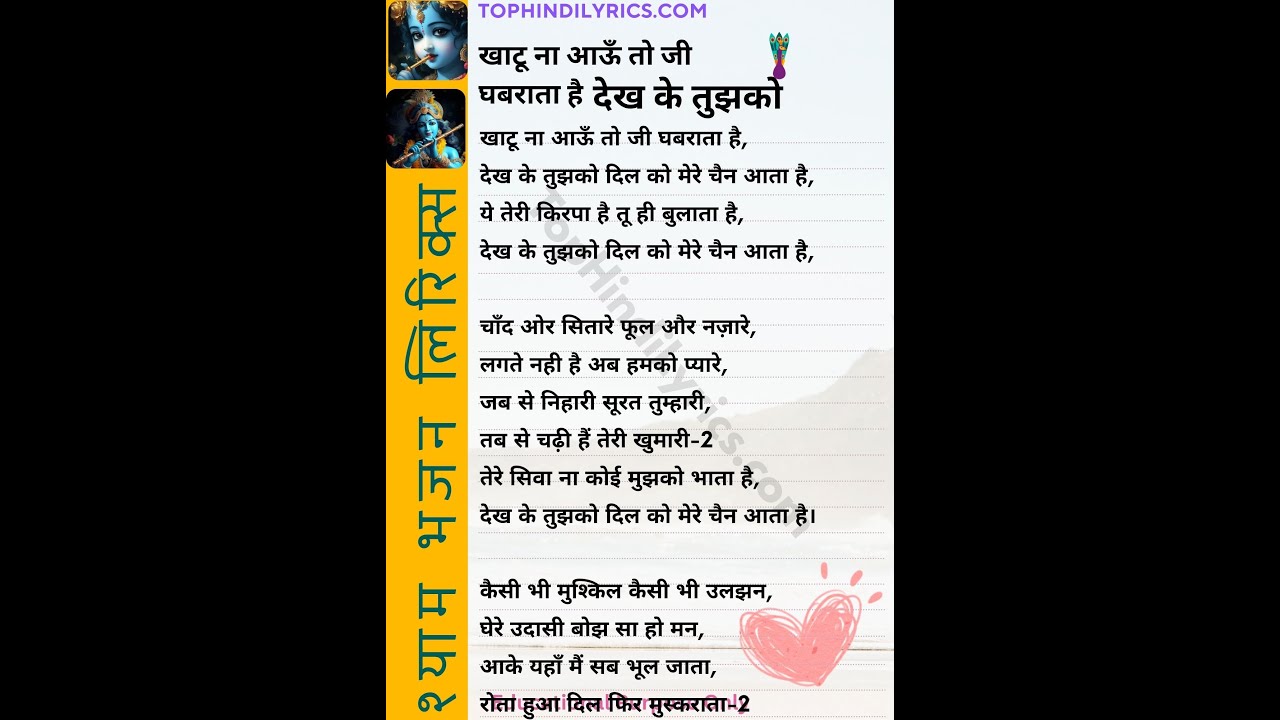 TOPHINDILYRICS.COM
खाटू ना आऊँ तो जी
घबराता है देख के तुझको
खाटू ना आऊँ तो जी घबराता है,
देख के तुझको दिल को मेरे चैन आता है,
ये तेरी किरपा है तू ही बुलाता है,
देख के तुझको दिल को मेरे चैन आता है,
चाँद ओर सितारे फूल और नज़ारे,
लगते नही है अब हमको प्यारे,
जब से निहारी सूरत तुम्हारी,
तब से चढ़ी हैं तेरी खुमारी-2
तेरे सिवा ना कोई मुझको भाता है,
देख के तुझको दिल को मेरे चैन आता है।
कैसी भी मुश्किल कैसी भी उलझन,
घेरे उदासी बोझ सा हो मन,
आके यहाँ मैं सब भूल जाता,
रोता हुआ दिल फिर मुस्कराता-2
श्याम भजन लिरिक्स
TopHindiLyrics.com